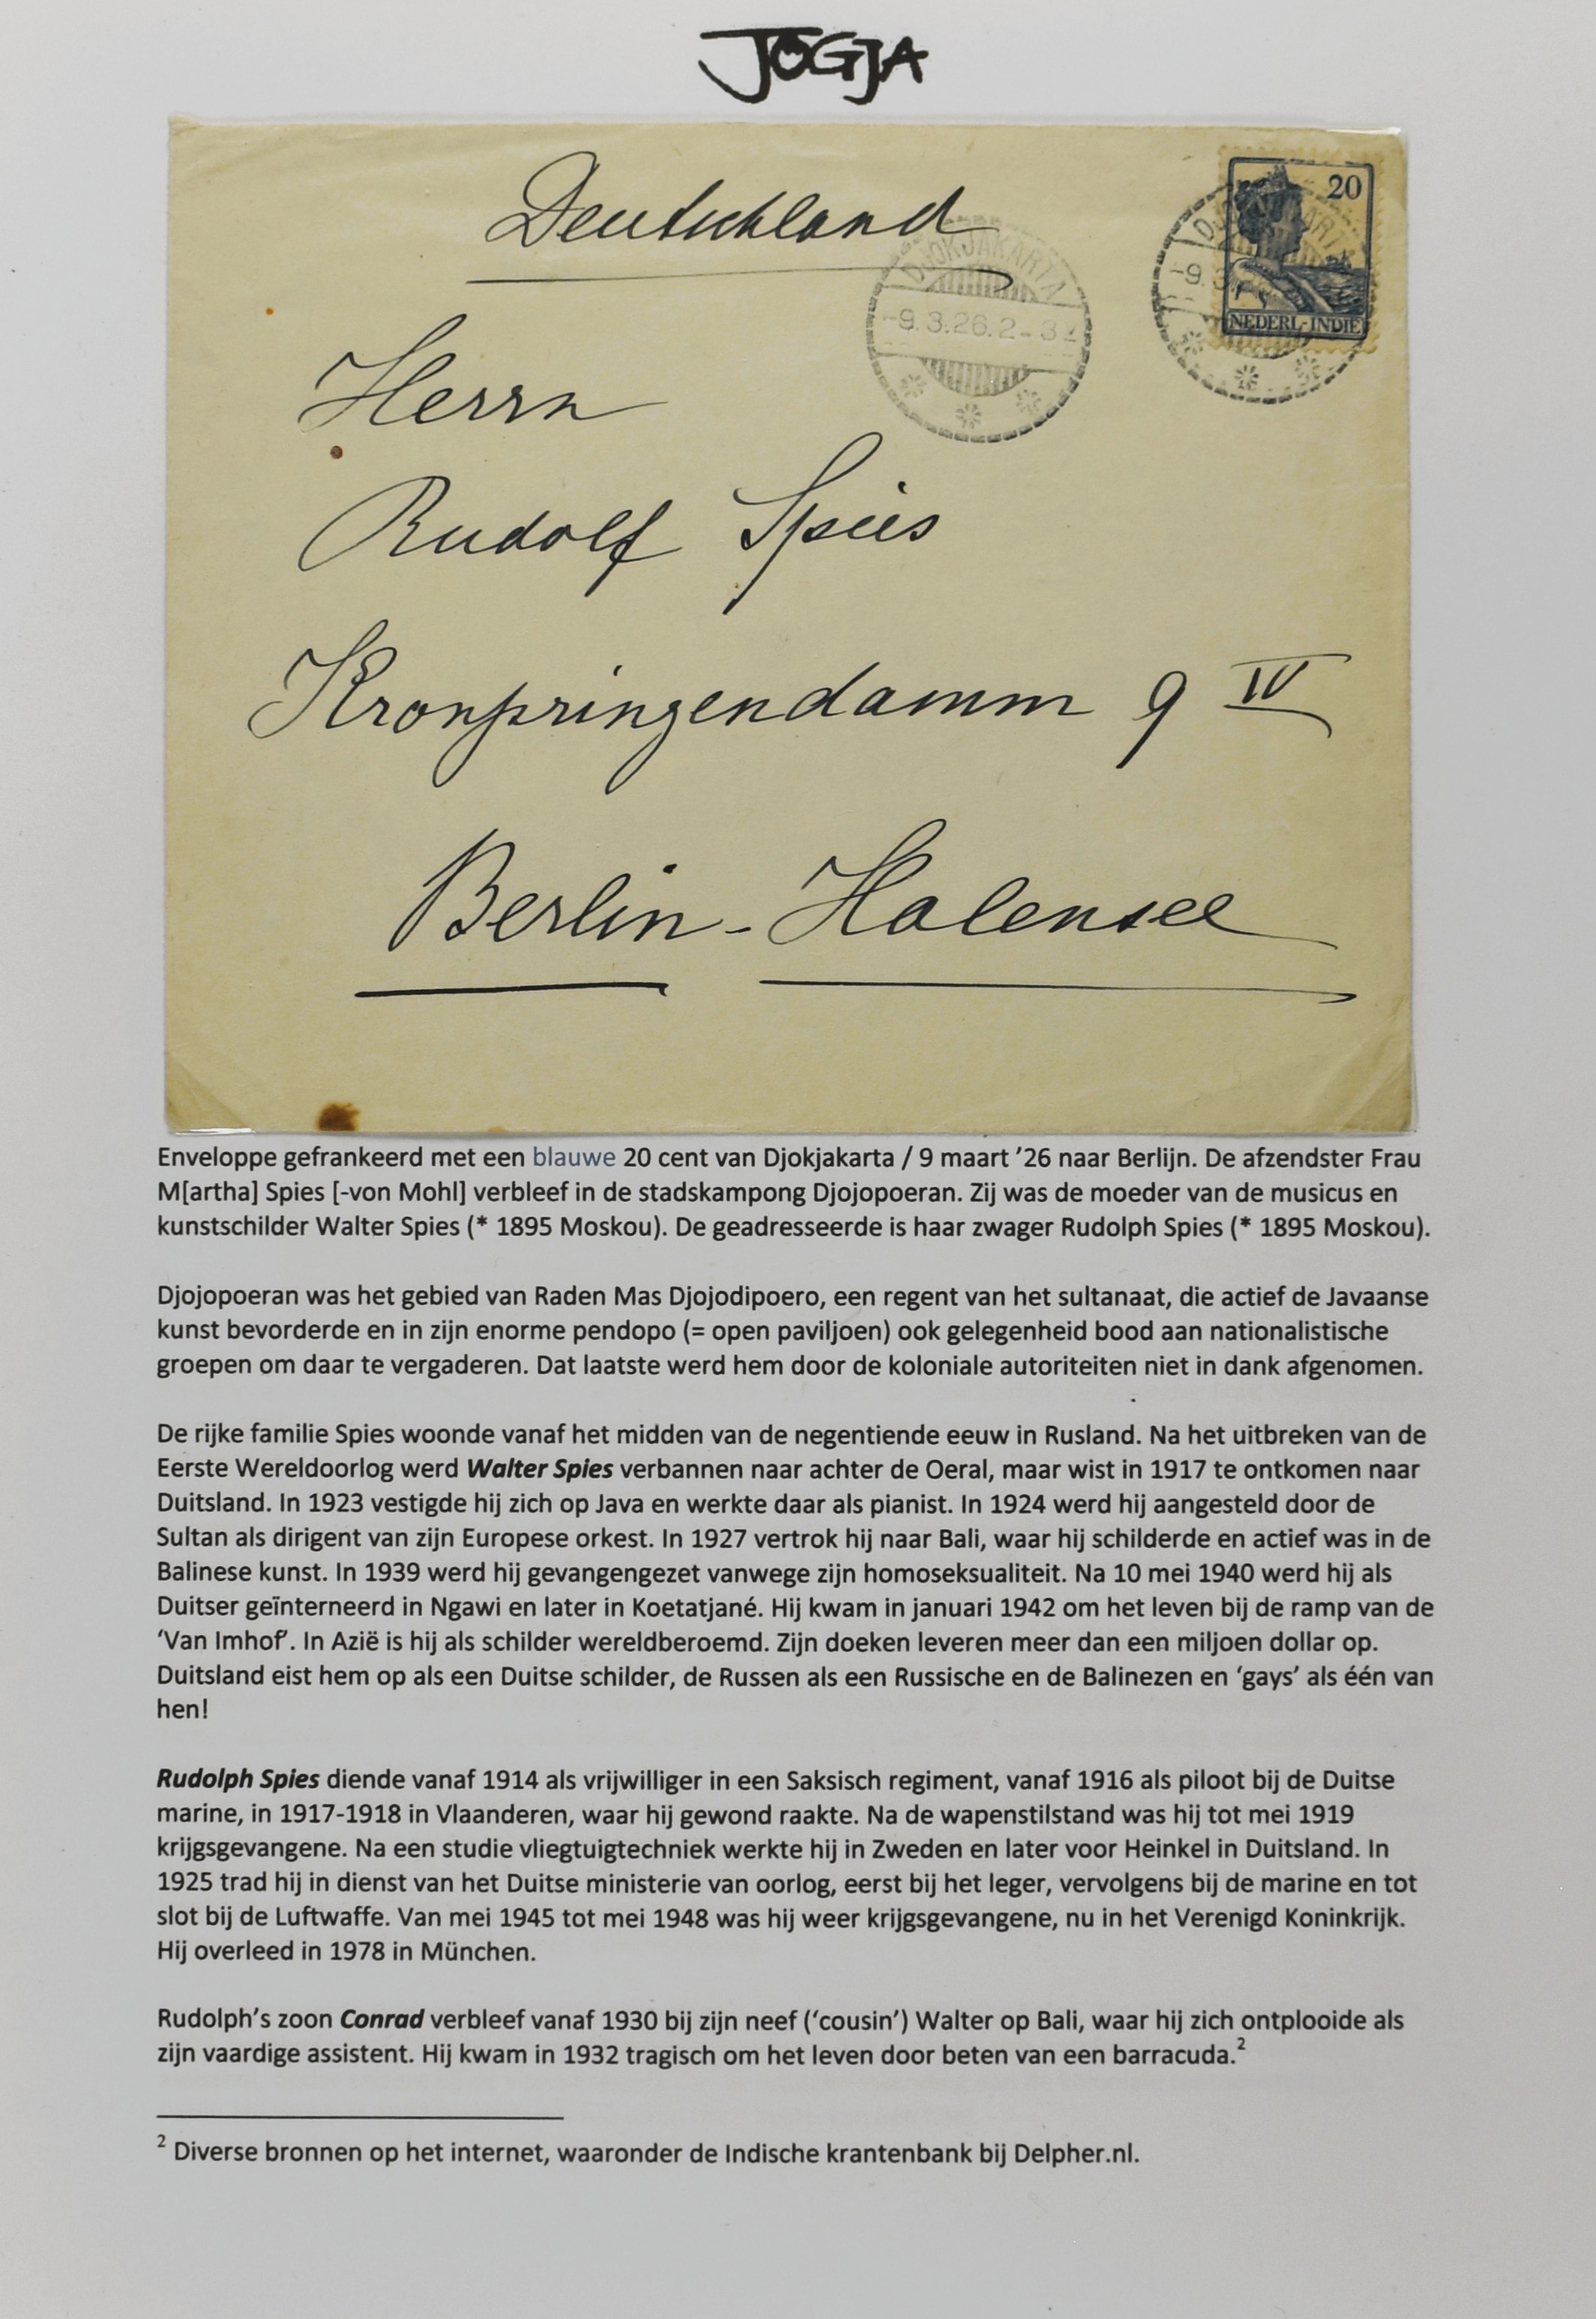 JOGJA
Deutschland
20
DJOKJAKARTA
-9.3.26.2-3
-9.3
NEDERL-INDIË
Herrn
Rudolf Spies
Kronprinzendamm 9 IV
Berlin-Halensee
Enveloppe gefrankeerd met een blauwe 20 cent van Djokjakarta / 9 maart ’26 naar Berlijn. De afzendster Frau
M[artha] Spies [-von Mohl] verbleef in de stadskampong Djojopoeran. Zij was de moeder van de musicus en
kunstschilder Walter Spies (* 1895 Moskou). De geadresseerde is haar zwager Rudolph Spies (* 1895 Moskou).
Djojopoeran was het gebied van Raden Mas Djojodipoero, een regent van het sultanaat, die actief de Javaanse
kunst bevorderde en in zijn enorme pendopo (= open paviljoen) ook gelegenheid bood aan nationalistische
groepen om daar te vergaderen. Dat laatste werd hem door de koloniale autoriteiten niet in dank afgenomen.
De rijke familie Spies woonde vanaf het midden van de negentiende eeuw in Rusland. Na het uitbreken van de
Eerste Wereldoorlog werd Walter Spies verbannen naar achter de Oeral, maar wist in 1917 te ontkomen naar
Duitsland. In 1923 vestigde hij zich op Java en werkte daar als pianist. In 1924 werd hij aangesteld door de
Sultan als dirigent van zijn Europese orkest. In 1927 vertrok hij naar Bali, waar hij schilderde en actief was in de
Balinese kunst. In 1939 werd hij gevangengezet vanwege zijn homoseksualiteit. Na 10 mei 1940 werd hij als
Duitser geïnterneerd in Ngawi en later in Koetatjané. Hij kwam in januari 1942 om het leven bij de ramp van de
‘Van Imhof’. In Azië is hij als schilder wereldberoemd. Zijn doeken leveren meer dan een miljoen dollar op.
Duitsland eist hem op als een Duitse schilder, de Russen als een Russische en de Balinezen en ‘gays’ als één van
hen!
Rudolph Spies diende vanaf 1914 als vrijwilliger in een Saksisch regiment, vanaf 1916 als piloot bij de Duitse
marine, in 1917-1918 in Vlaanderen, waar hij gewond raakte. Na de wapenstilstand was hij tot mei 1919
krijgsgevangene. Na een studie vliegtuigtechniek werkte hij in Zweden en later voor Heinkel in Duitsland. In
1925 trad hij in dienst van het Duitse ministerie van oorlog, eerst bij het leger, vervolgens bij de marine en tot
slot bij de Luftwaffe. Van mei 1945 tot mei 1948 was hij weer krijgsgevangene, nu in het Verenigd Koninkrijk.
Hij overleed in 1978 in München.
Rudolph’s zoon Conrad verbleef vanaf 1930 bij zijn neef (‘cousin’) Walter op Bali, waar hij zich ontplooide als
zijn vaardige assistent. Hij kwam in 1932 tragisch om het leven door beten van een barracuda.2
2 Diverse bronnen op het internet, waaronder de Indische krantenbank bij Delpher.nl.